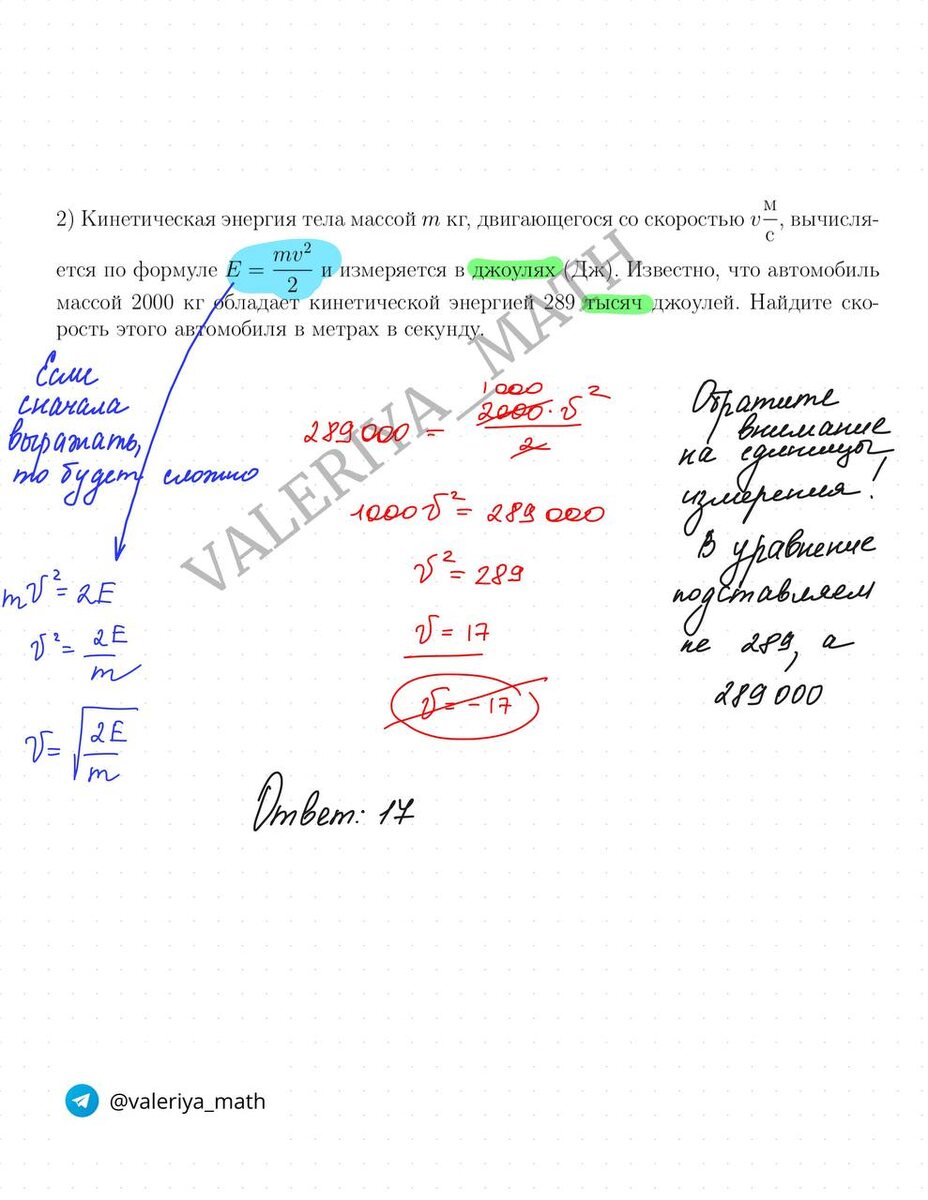 2) Кинетическая энергия тела массой m кг, двигающегося со скоростью v м/с, вычисля-
ется по формуле E = mv²/2 и измеряется в джоулях (Дж). Известно, что автомобиль
массой 2000 кг обладает кинетической энергией 289 тысяч джоулей. Найдите ско-
рость этого автомобиля в метрах в секунду.
Если
сначала
выражать,
то будет сложно
mv² = 2E
v² = 2E/m
v = √(2E/m)
1000
289 000 = 2000 · v²/2
1000v² = 289 000
v² = 289
v = 17
v = -17
Обратите
внимание
на единицы
измерения!
В уравнение
подставляем
не 289, а
289 000
Ответ: 17
VALERIYA_MATH
@valeriya_math